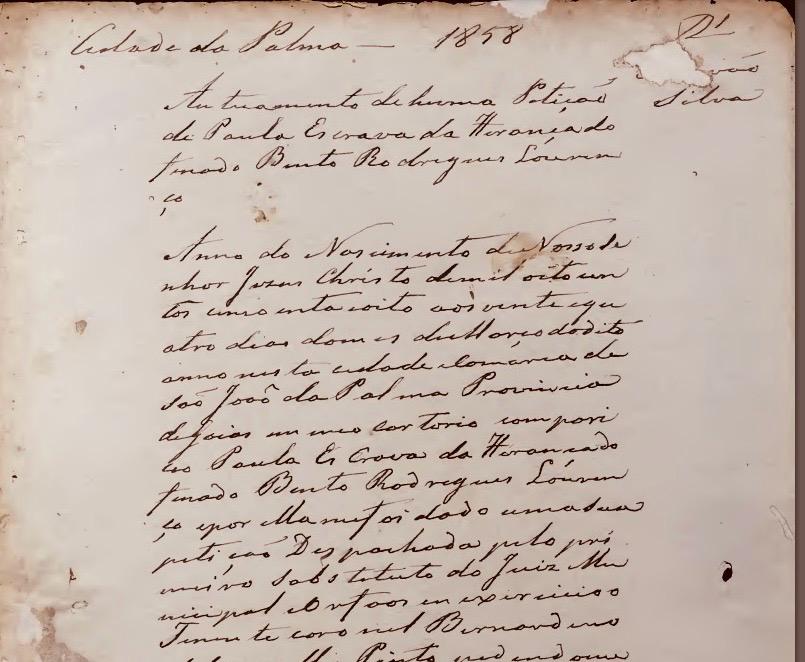 Cidade da Palma — 1858
Silva
Autuamento de huma Petição
de Paula Escrava da Herança do
finado Bento Rodrigues Louren
ço
Anno do Nascimento de Nosso Se
nhor Jezus Christo de mil oito cen
tos cincoenta e oito aos vinte e qu
atro dias do mes de Março do dito
anno nesta cidade e Comarca de
São João da Palma Provincia
de Goias em meo cartorio compari
ceo Paula Escrava da Herança do
finado Bento Rodrigues Louren
ço e por Ella me foi dado uma sua
petição Despachada pelo pri
meiro Sobstituto do Juiz Mu
nicipal e Orfaos em exercicio o
Tenente coronel Bernardino
Pinto